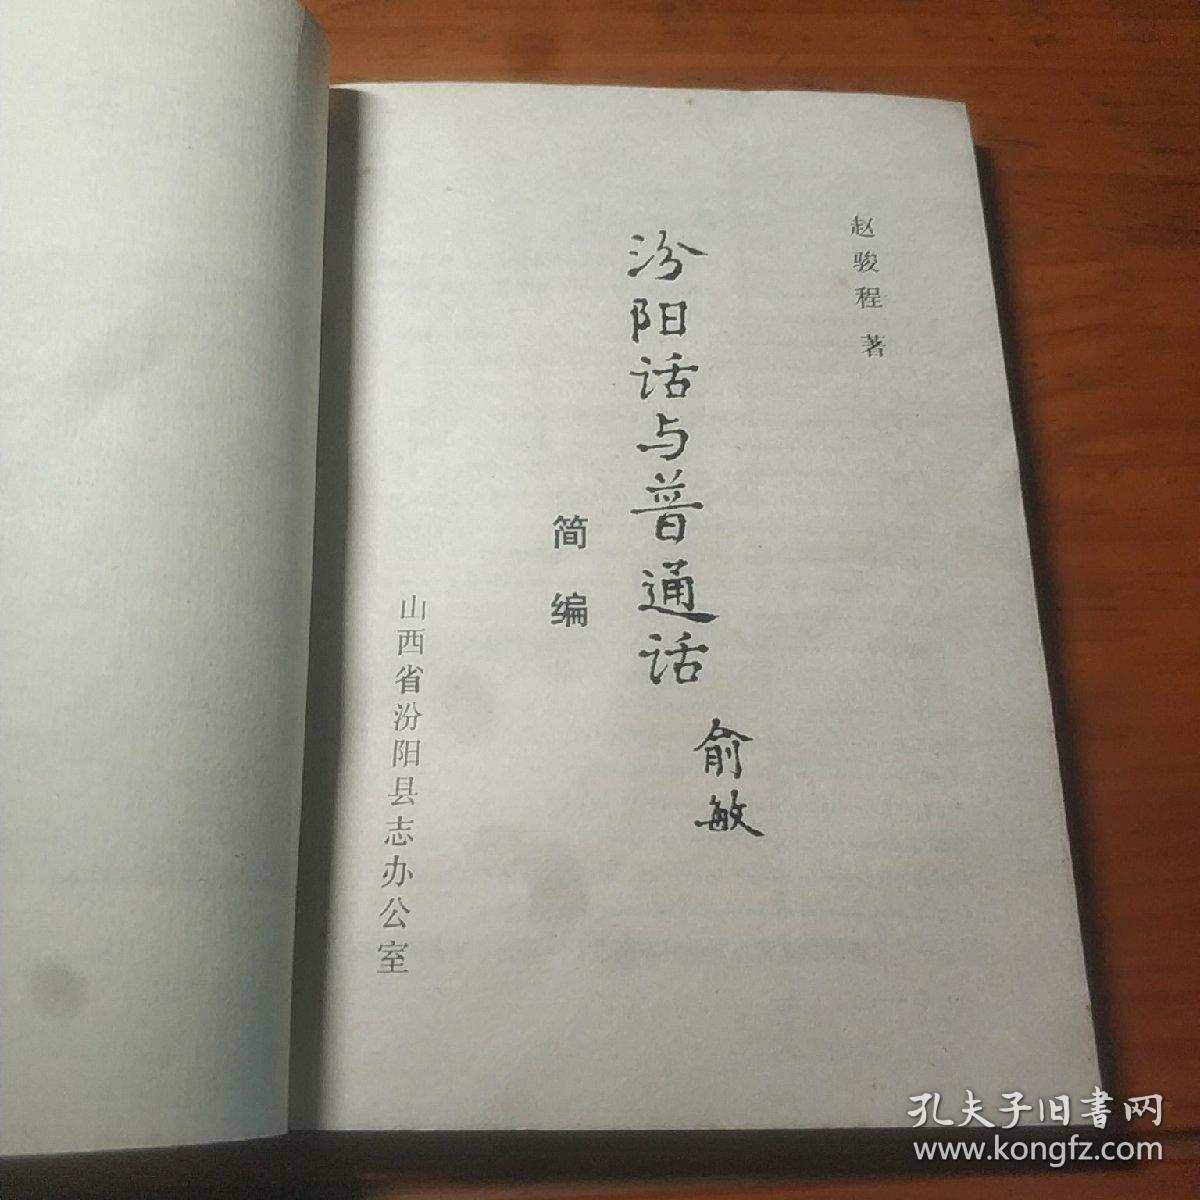 赵骏程 著
汾阳话与普通话
俞敏
简编
山西省汾阳县志办公室
孔夫子旧书网
www.kongfz.com